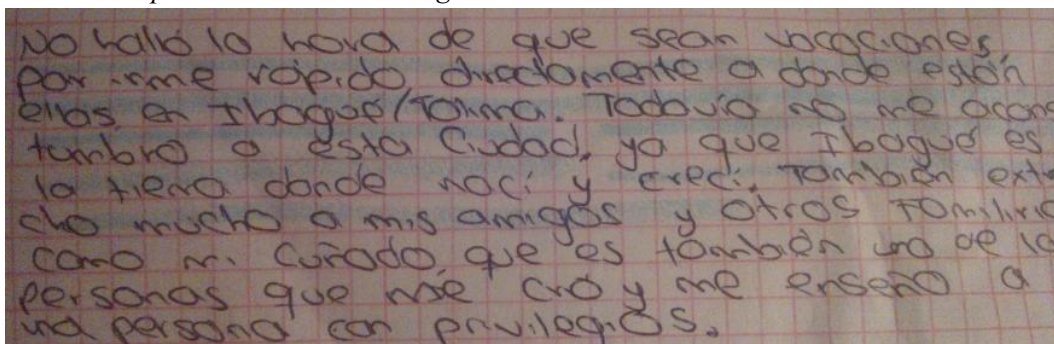 No hallo la hora de que sean vacaciones
por irme rápido directamente a donde están
ellos en Ibagué/Tolima. Todavía no me acos
tumbro a esta Ciudad, ya que Ibagué es
la tierra donde nací y crecí. También extra
cho mucho a mis amigos y otros Familiare
como mi Cuñado, que es también una de la
personas que me crió y me enseñó a
una persona con privilegios.